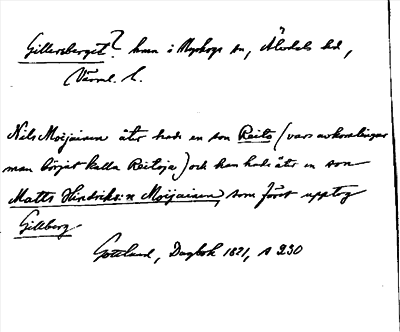 Gillersberget? hem i Nyskoga sn, Älvdals hd,
Värml. l.
Nils Moijainen åter hade en son Reito (vars avkomlingar
man börjat kalla Reitoja) och han hade åter en son
Matts Hindriks:n Moijainen, som först upptog
Gillberg.
Gottlund, Dagbok 1821, s 230